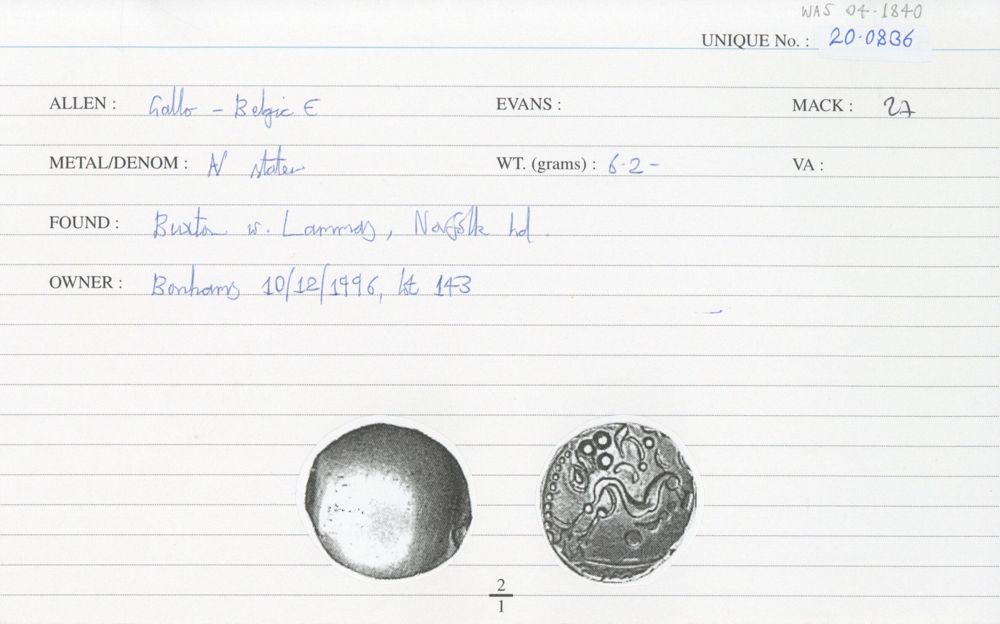 WAS 04-1840
UNIQUE No. : 20.0836
ALLEN : Gallo - Belgic E EVANS : MACK : 27
METAL/DENOM : A/ stater WT. (grams) : 6.2 - VA :
FOUND : Buxton w. Lammas, Norfolk hd.
OWNER : Bonhams 10/12/1996, lot 143
2
1